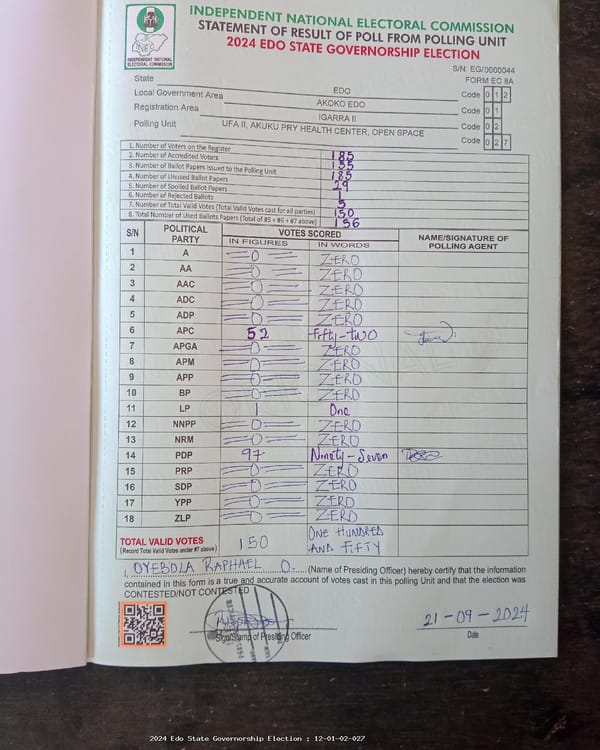 INDEPENDENT NATIONAL ELECTORAL COMMISSION
STATEMENT OF RESULT OF POLL FROM POLLING UNIT
2024 EDO STATE GOVERNORSHIP ELECTION
INEC
INDEPENDENT NATIONAL ELECTORAL COMMISSION
S/N: EG/0000044
FORM EC 8A
State EDO Code 0 1 2
Local Government Area AKOKO EDO Code 0 1
Registration Area IGARRA II Code 0 2
Polling Unit UFA II, AKUKU PRY HEALTH CENTER, OPEN SPACE Code 0 2 7
1. Number of Voters on the Register 185
2. Number of Accredited Voters 155
3. Number of Ballot Papers Issued to the Polling Unit 185
4. Number of Unused Ballot Papers 29
5. Number of Spoiled Ballot Papers 1
6. Number of Rejected Ballots 5
7. Number of Total Valid Votes (Total Valid Votes cast for all parties) 150
8. Total Number of Used Ballots Papers (Total of #5 + #6 + #7 above) 156
S/N POLITICAL PARTY VOTES SCORED NAME/SIGNATURE OF POLLING AGENT
IN FIGURES IN WORDS
1 A 0 ZERO
2 AA 0 ZERO
3 AAC 0 ZERO
4 ADC 0 ZERO
5 ADP 0 ZERO
6 APC 52 Fifty-two
7 APGA 0 ZERO
8 APM 0 ZERO
9 APP 0 ZERO
10 BP 0 ZERO
11 LP 1 One
12 NNPP 0 ZERO
13 NRM 0 ZERO
14 PDP 97 Ninety-Seven
15 PRP 0 ZERO
16 SDP 0 ZERO
17 YPP 0 ZERO
18 ZLP 0 ZERO
TOTAL VALID VOTES 150 ONE HUNDRED AND FIFTY
(Record Total Valid Votes under #7 above)
I, OYEBOLA RAPHAEL O. (Name of Presiding Officer) hereby certify that the information
contained in this form is a true and accurate account of votes cast in this polling Unit and that the election was
CONTESTED/NOT CONTESTED
21-09-2024
Sign/Stamp of Presiding Officer Date
2024 Edo State Governorship Election : 12-01-02-027